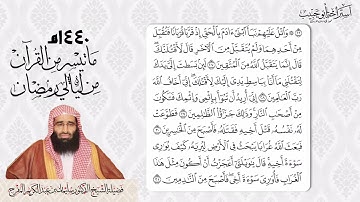 ١٤٤٠هـ
ما تيسر من القرآن
من ليالي رمضان
فضيلة الشيخ الدكتور
۞ وَٱتۡلُ عَلَيۡهِمۡ نَبَأَ ٱبۡنَيۡ ءَادَمَ بِٱلۡحَقِّ إِذۡ قَرَّبَا قُرۡبَانٗا فَتُقُبِّلَ
مِنۡ أَحَدِهِمَا وَلَمۡ يُتَقَبَّلۡ مِنَ ٱلۡأٓخَرِ قَالَ لَأَقۡتُلَنَّكَۖ
قَالَ إِنَّمَا يَتَقَبَّلُ ٱللَّهُ مِنَ ٱلۡمُتَّقِينَ ٢٧ لَئِنۢ بَسَطتَ إِلَيَّ يَدَكَ
لِتَقۡتُلَنِي مَآ أَنَا۠ بِبَاسِطٖ يَدِيَ إِلَيۡكَ لِأَقۡتُلَكَۖ إِنِّيٓ أَخَافُ ٱللَّهَ
رَبَّ ٱلۡعَٰلَمِينَ ٢٨ إِنِّيٓ أُرِيدُ أَن تَبُوٓأَ بِإِثۡمِي وَإِثۡمِكَ فَتَكُونَ
مِنۡ أَصۡحَٰبِ ٱلنَّارِۚ وَذَٰلِكَ جَزَٰٓؤُاْ ٱلظَّٰلِمِينَ ٢٩ فَطَوَّعَتۡ
لَهُۥ نَفۡسُهُۥ قَتۡلَ أَخِيهِ فَقَتَلَهُۥ فَأَصۡبَحَ مِنَ ٱلۡخَٰسِرِينَ ٣٠
فَبَعَثَ ٱللَّهُ غُرَابٗا يَبۡحَثُ فِي ٱلۡأَرۡضِ لِيُرِيَهُۥ كَيۡفَ يُوَٰرِي
سَوۡءَةَ أَخِيهِۚ قَالَ يَٰوَيۡلَتَىٰٓ أَعَجَزۡتُ أَنۡ أَكُونَ مِثۡلَ هَٰذَا
ٱلۡغُرَابِ فَأُوَٰرِيَ سَوۡءَةَ أَخِيۖ فَأَصۡبَحَ مِنَ ٱلنَّٰدِمِينَ ٣١